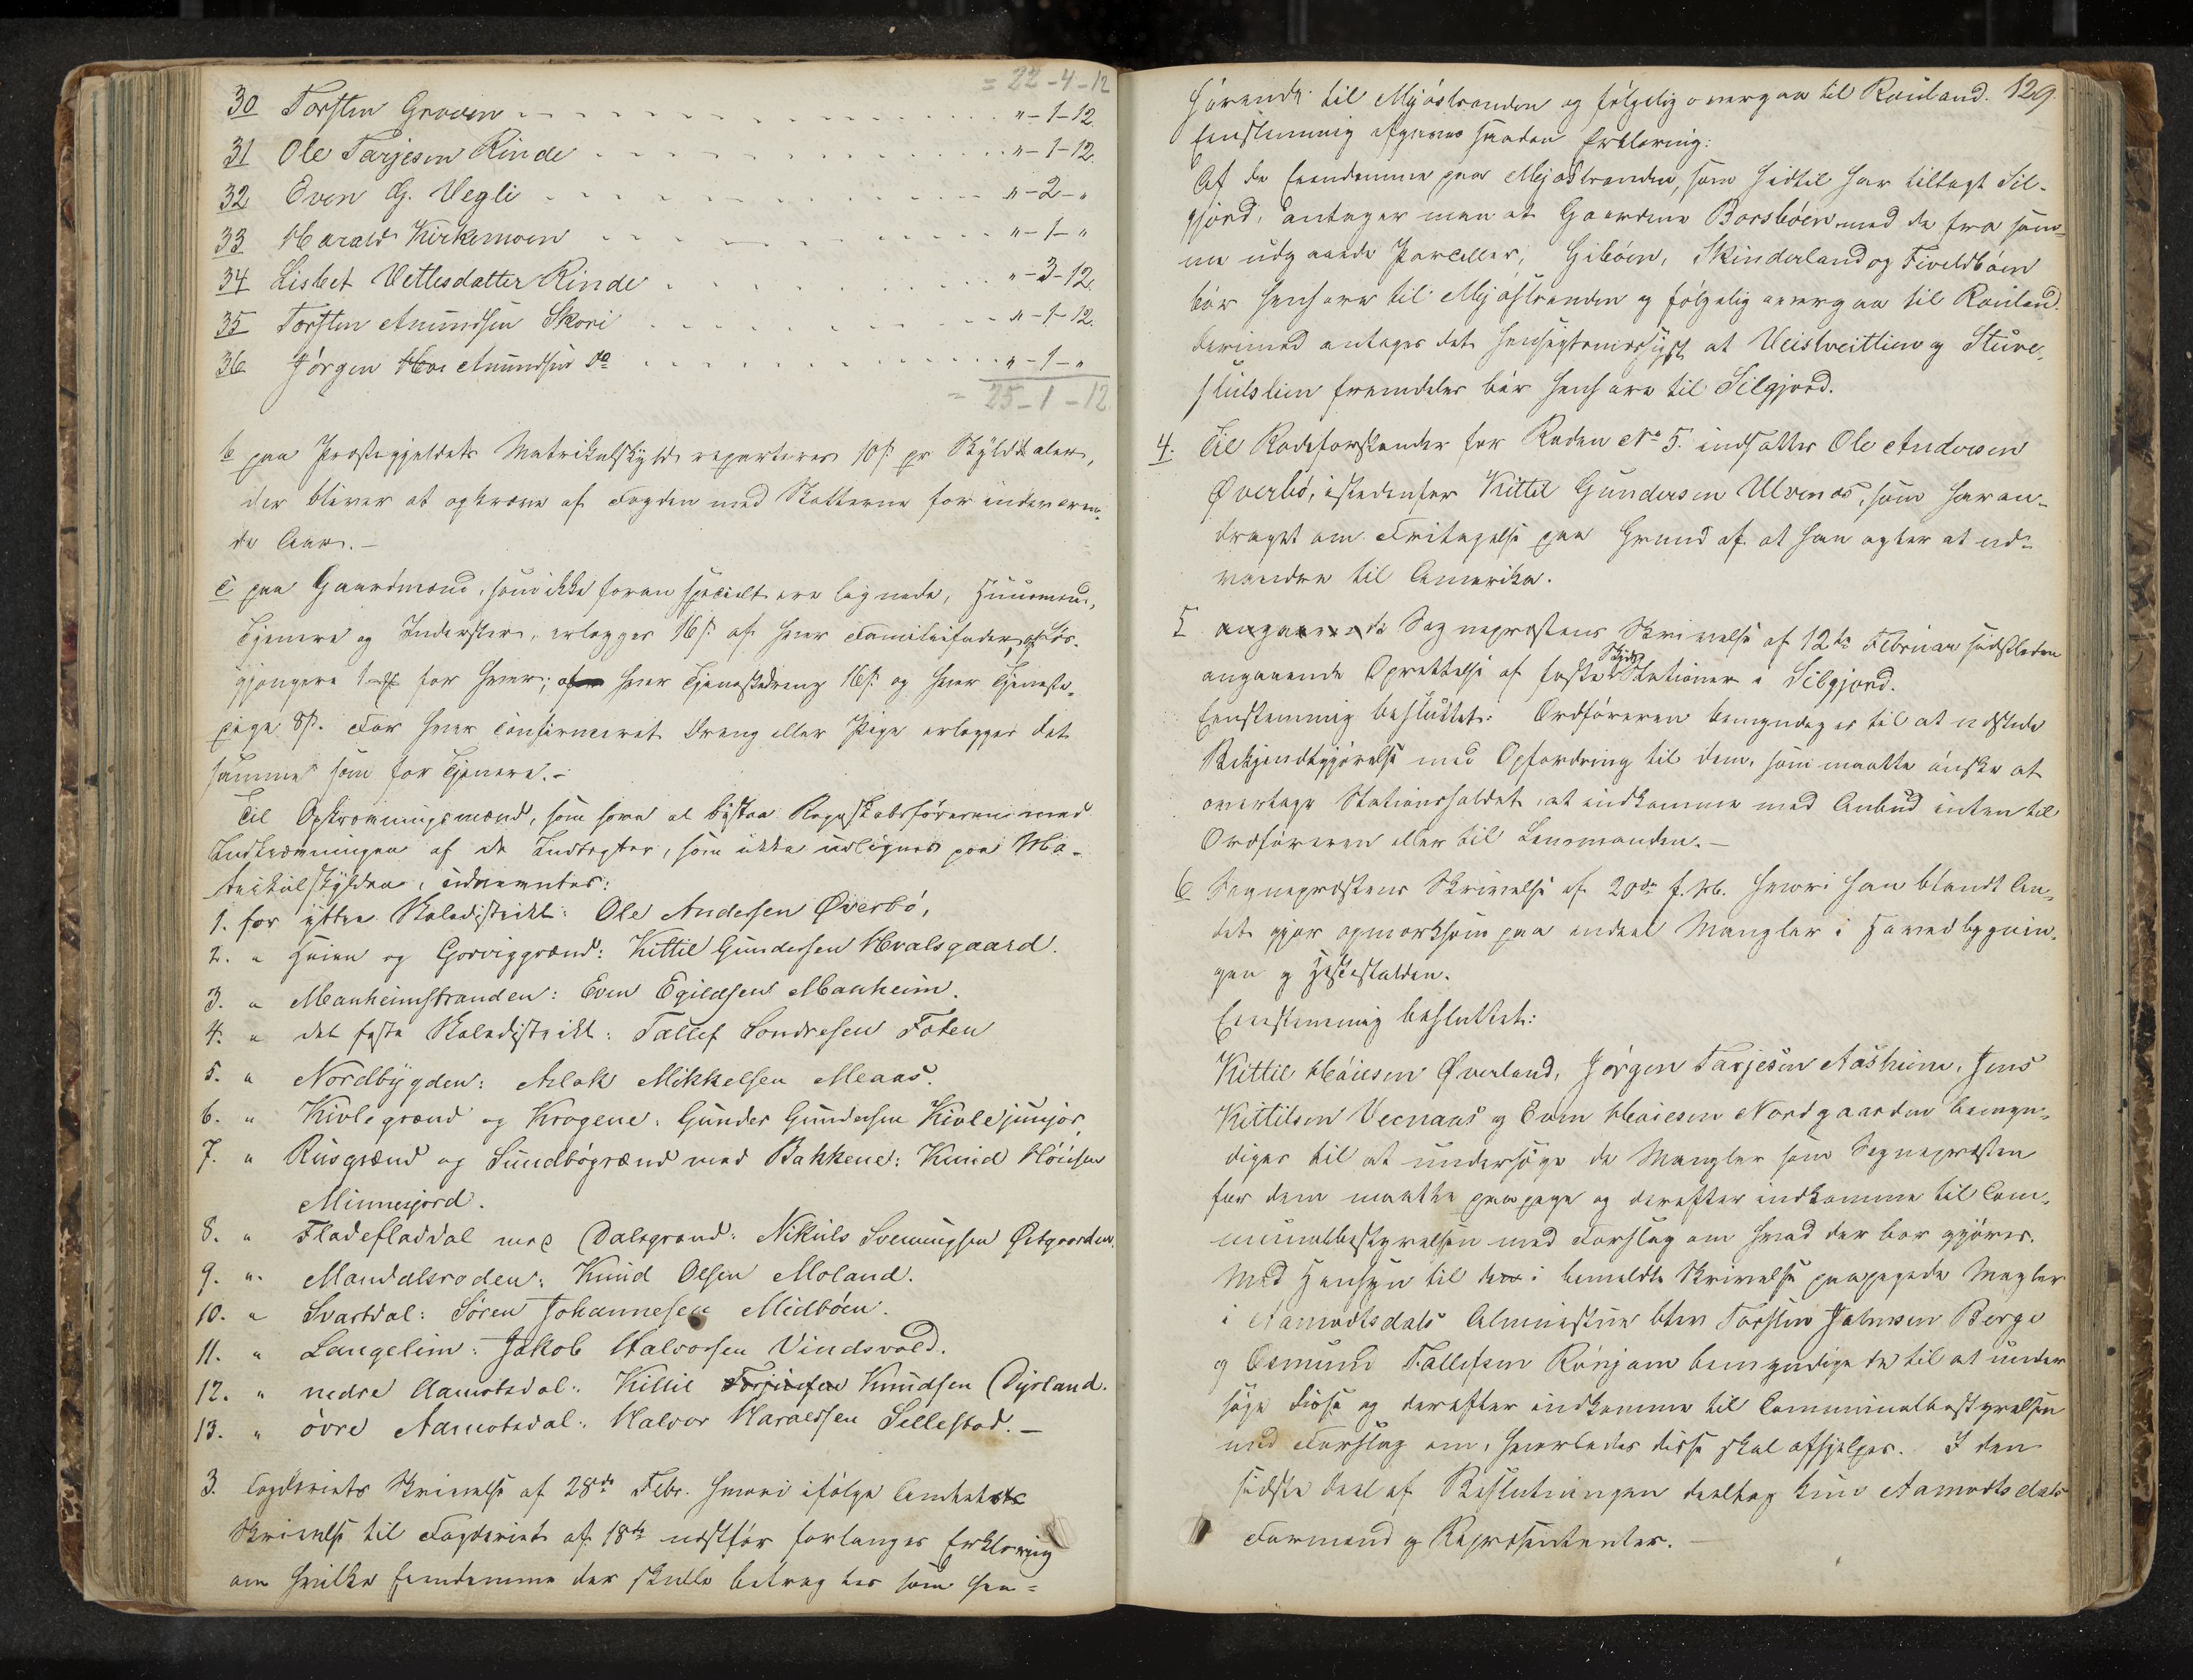 = 22-4-12
30 Torsten Groven - - - - - - - „-1-12.
31 Ole Tarjesen Rinde - - - - - - - „-1-12.
32 Even G. Vegli - - - - - - - „-2-„
33 Harald Kirkemoen - - - - - - - „-1-„
34 Lisbet Vetlesdatter Rinde - - - - - - - „-3-12.
35 Torsten Amundsen Skori - - - - - - - „-1-12.
36 Jørgen Amundsen do - - - - - - - „-1-„
= 25-1-12
b paa Præstegjeldets Matrikulskyld reparteres 10 ß pr Skylddaler,
der bliver at opkræve af Fogden med Skatterne for indeværen-
de Aar.-
c paa Gaardmænd, som ikke foran specielt ere lignede, Huusmænd,
Tjenere og Inderster, erlægges 16 ß af hver Familiefader, af Løs-
gjængere 1 ort for hver; hver Tjenestedreng 16 ß og hver Tjeneste-
pige 8 ß. For hver confirmeret Dreng eller Pige erlægges det
samme som for Tjenere.-
Til Opkrævningsmænd, som have at bistaa Regnskabsføreren med
Indkrævningen af de Indtægter, som ikke udlignes paa Ma-
trikulskylden, udnævntes:
1. for ytre Skoledistrikt: Ole Andersen Øverbø,
2. „ Heien og Gorviggrænd: Kittil Gundersen Hvalsgaard.
3. „ Manheimstranden: Even Egildsen Manheim.
4. „ det faste Skoledistrikt: Tallef Sondresen Foten
5. „ Nordbygden: Aslak Mikkelsen Meaas.
6. „ Kivlegrænd og Krogene: Gunder Gundersen Kivle junior,
7. „ Rusgrænd og Sundbøgrænd med Bakkene: Knud Høiesen
Minnesjord.
8. „ Fladefladdal med Dalsgrænd: Nikuls Sveinungsen Østgaarden.
9. „ Mandalsroden: Knud Olsen Moland.
10. „ Svartdal: Søren Johannesen Midbøen.
11. „ Langelim: Jakob Halvorsen Vindsvold.
12. „ nedre Aamotsdal: Kittil Knudsen Dyrland.
13. „ øvre Aamotsdal: Halvor Haraldsen Sellestad.-
3. Fogderiets Skrivelse af 28de Febr. hvori ifølge Amtets
Skrivelse til Fogderiet af 18de næstfør forlanges Erklæring
om hvilke Eiendomme der skulle betragtes som hen=
129.
hørende til Mjøstranden og følgelig overgaa til Rauland.
Eenstemmig afgaves saadan Erklæring:
Af de Eiendomme paa Mjøstranden, som hidtil har tillagt Sil-
gjord, antager man at Gaardene Borsbøen med de fra sam-
me udgaaede Parceller, Gibøen, Skinderland og Fiveldbøen
bør henhøre til Mjøstranden og følgelig overgaa til Rauland.
derimod antages det hensigtsmæssigst at Veistveitlien og Sture-
stulslien fremdeles bør henhøre til Silgjord.
4. Til Rodeforstander for Roden No 5. indsattes Ole Andersen
Øverbø, istedenfor Kittil Gundersen Ulvenæs, som har an-
draget om Fritagelse paa Grund af at han agter at ud-
vandre til Amerika.
5 angaaende Sognepræstens Skrivelse af 12te Februar sidstleden
angaaende Oprettelse af faste Skyds Stationer i Silgjord.
Eenstemmig besluttet: Ordføreren bemyndiges til at udstede
Bekjendtgjørelse med Opfordring til dem, som maatte ønske at
overtage Stationsholdet, at indkomme med Anbud enten til
Ordføreren eller til Lensmanden.-
6 Sognepræstens Skrivelse af 20de f. M. hvori han blandt An-
det gjør opmærksom paa endeel Mangler i Hovedbygnin-
gen og Hestestalden.
Eenstemmig besluttet:
Kittil Høiesen Øverland, Jørgen Tarjesen Aasheim, Jens
Kittilsen Vecnaas og Even Høiesen Nordgaarden bemyn-
diges til at undersøge de Mangler som Sognepræsten
for dem maatte paapege og derefter indkomme til Com-
munalbestyrelsen med Forslag om hvad der bør gjøres.
Med Hensyn til de i bemeldte Skrivelse paapegede Mangler
i Aamodtsdals Almuestue blev Torsten Jalmsen Berge
og Osmund Tallefsen Rønjom bemyndigede til at under
søge disse og derefter indkomme til Communalbestyrelsen
med Forslag om, hvorledes disse skal afhjelpes. I den
sidste Deel af Beslutningen deeltog kun Aamodtsdals
Formænd og Repræsentanter.-